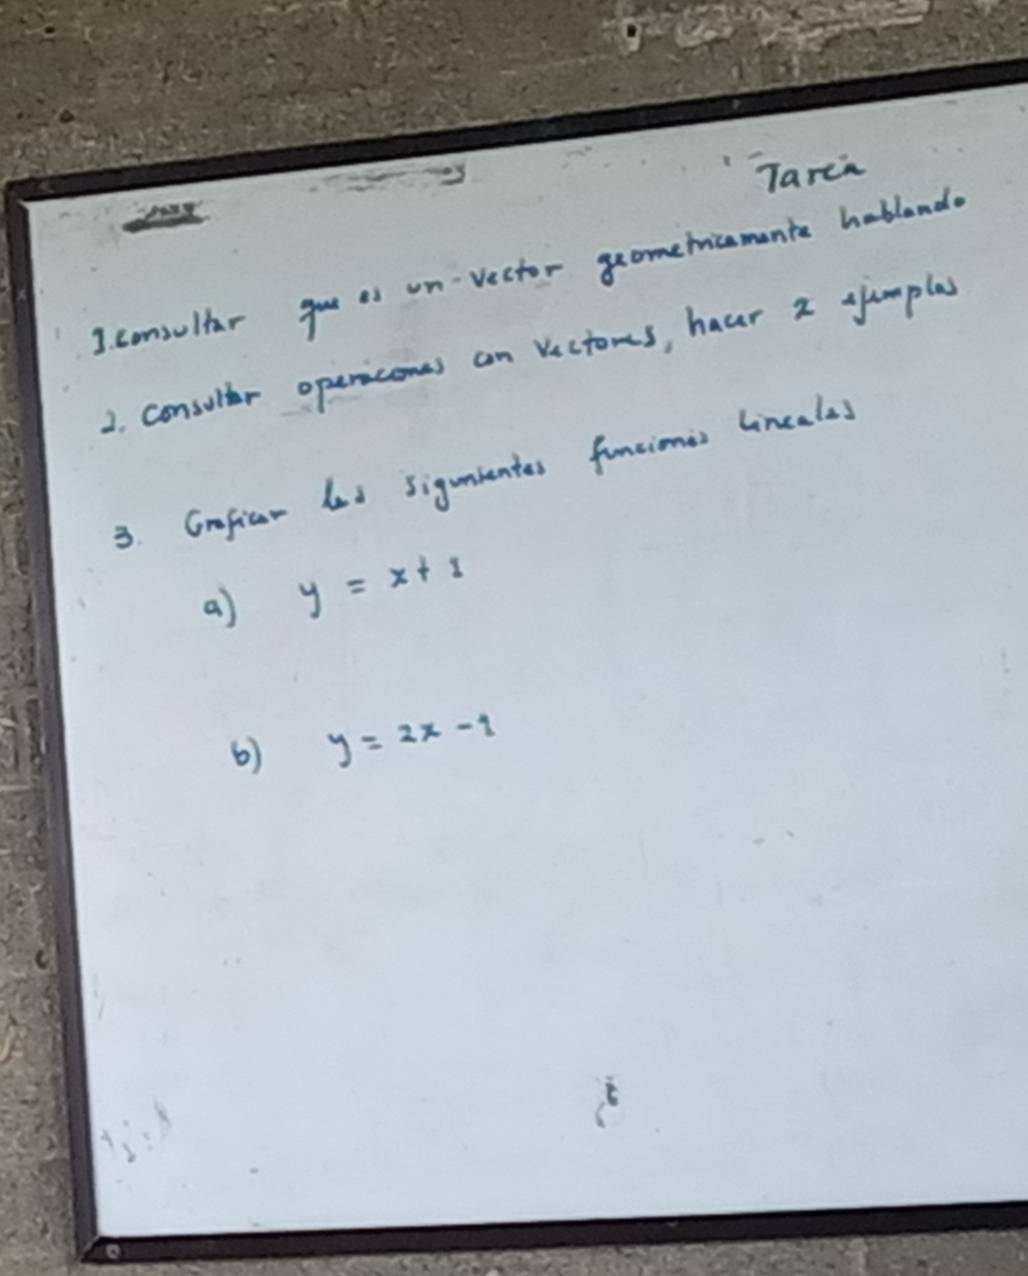 Tarea
1. consultar que es un vector geometricamente hablando
2. consultar operacones con vectores, hacer 2 ejemplos
3. Graficar las siguientes funciones lineales
a) y = x + 1
b) y = 2x - 1